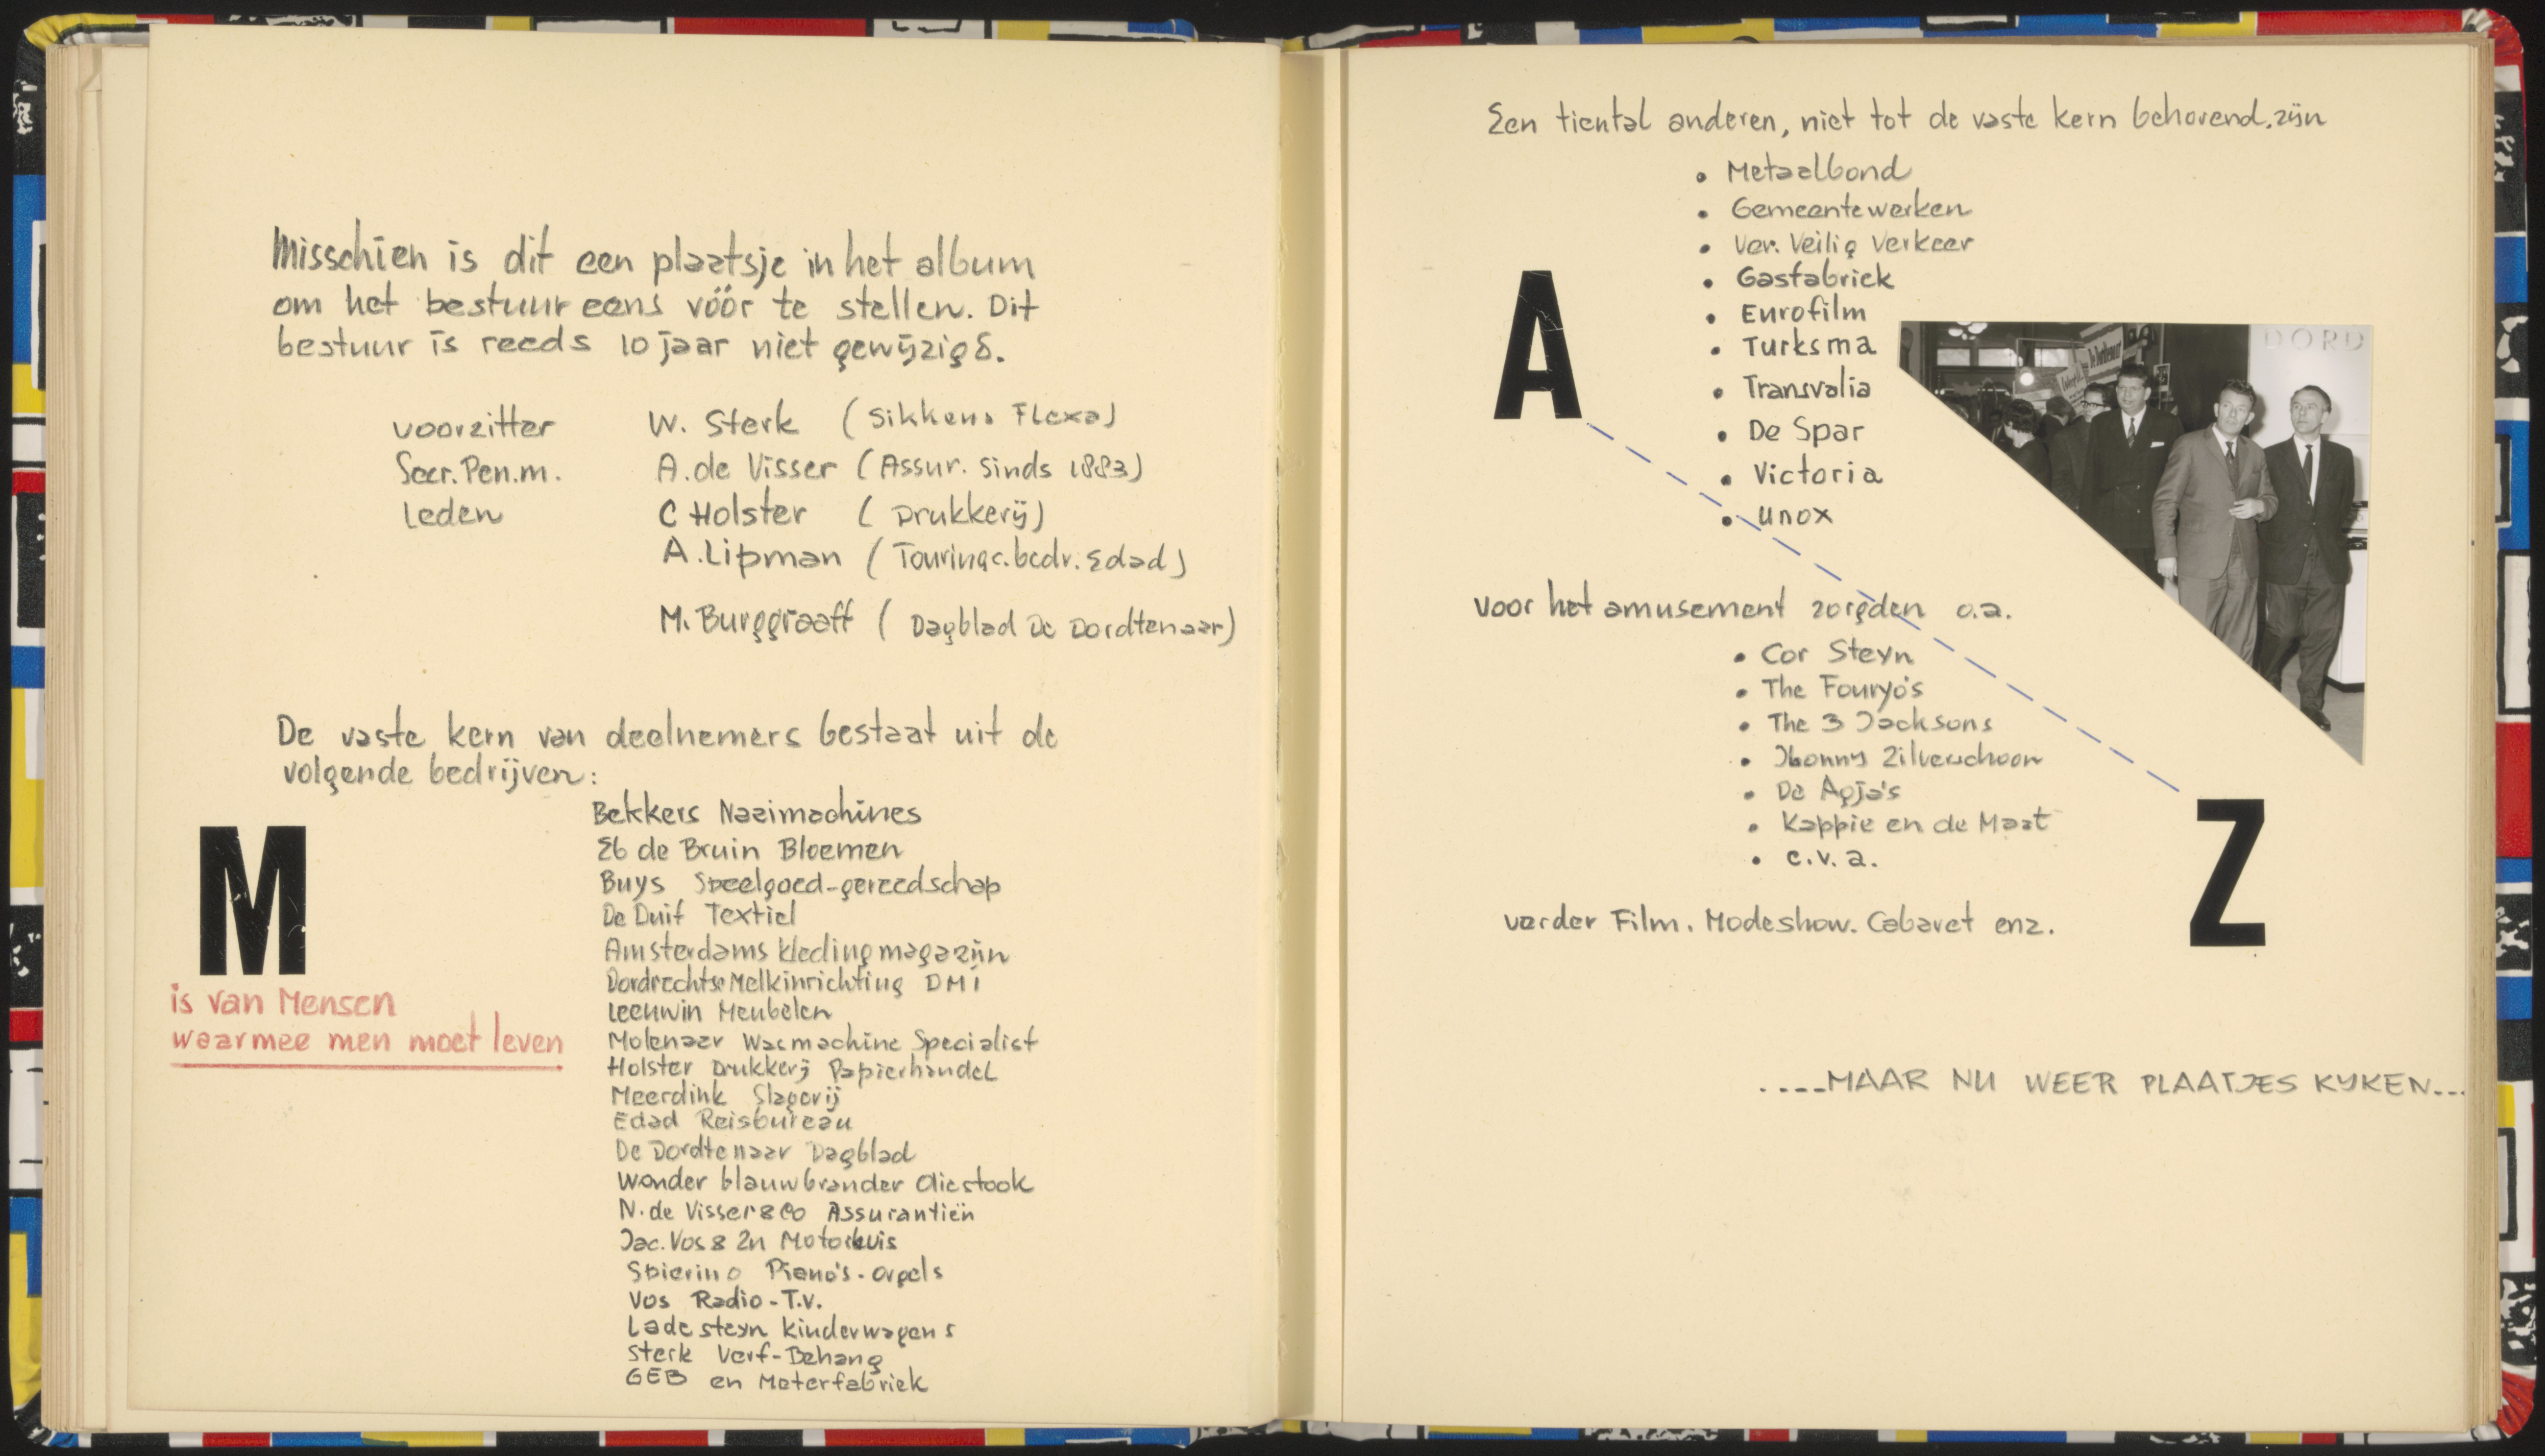 Misschien is dit een plaatsje in het album
om het bestuur eens vóór te stellen. Dit
bestuur is reeds 10 jaar niet gewijzigd.
voorzitter W. Sterk (Sikkens Flexa)
Secr. Pen.m. A. de Visser (Assur. Sinds 1883)
Leden C Holster (Drukkerij)
A. Lipman (Touringc. bedr. Edad)
M. Burggraaff (Dagblad De Dordtenaar)
De vaste kern van deelnemers bestaat uit de
volgende bedrijven:
M
is van Mensen
waarmee men moet leven
Bekkers Naaimachines
Eb de Bruin Bloemen
Buys Speelgoed-gereedschap
De Duif Textiel
Amsterdams kledingmagazijn
Dordrechtse Melkinrichting DMI
Leeuwin Meubelen
Molenaar Wasmachine Specialist
Holster Drukkerij Papierhandel
Meerdink Slagerij
Edad Reisbureau
De Dordtenaar Dagblad
Wonder blauwbrander Oliestook
N. de Visser & Co Assurantiën
Jac. Vos & Zn Motorhuis
Spiering Piano's - orgels
Vos Radio - T.V.
Ladesteyn kinderwagens
Sterk Verf-Behang
GEB en Meterfabriek
Een tiental anderen, niet tot de vaste kern behorend, zijn
• Metaalbond
• Gemeentewerken
• Ver. Veilig Verkeer
• Gasfabriek
• Eurofilm
• Turksma
• Transvalia
• De Spar
• Victoria
• Unox
A
DORD
De Dordtenaar
voor het amusement zorgden o.a.
• Cor Steyn
• The Fouryo's
• The 3 Jacksons
• Jhonny Zilverschoon
• De Agja's
• Kappie en de Maat
• e.v.a.
Z
verder Film. Modeshow. Cabaret enz.
....MAAR NU WEER PLAATJES KYKEN...